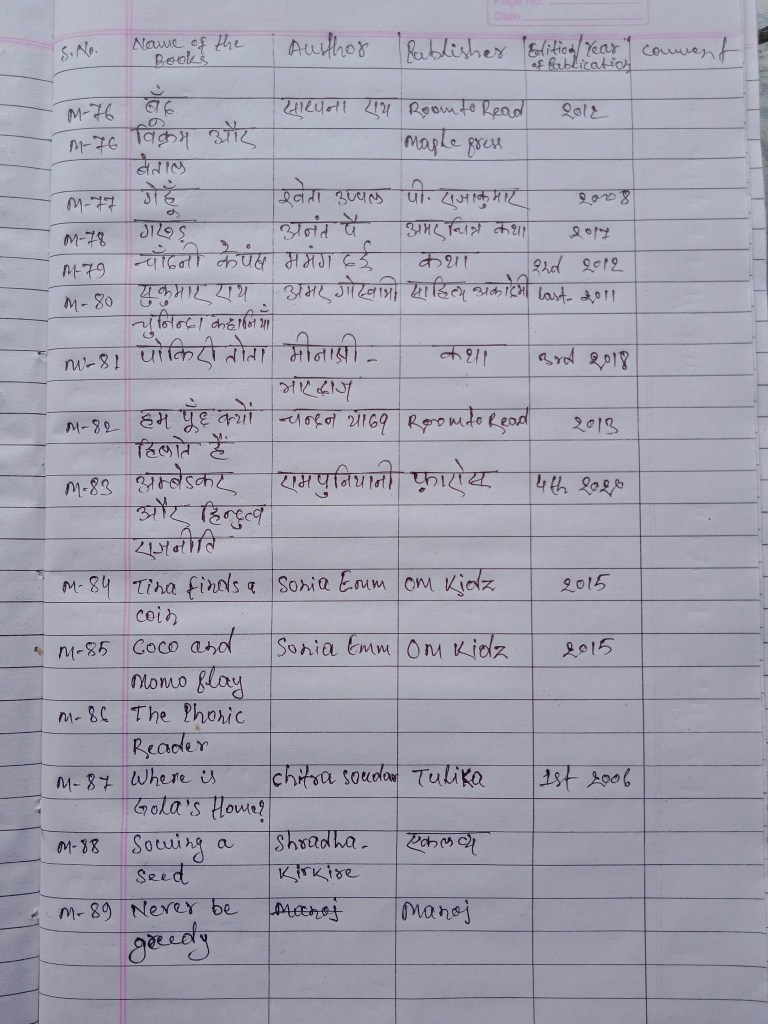 Page No.
Date
S.No. Name of the Books Author Publisher Edition/Year of Publication Comment
M-76 बूँद साधना राय Room to Read 2012
M-76 विक्रम और Maple press
बेताल
M-77 गेहूँ श्वेता उप्पल पी. राजाकुमार 2008
M-78 गरुड़ अनंत पै अमर चित्र कथा 2017
M-79 चाँदनी के पंख ममंग दई कथा 2nd 2012
M-80 सुकुमार राय अमर गोस्वामी साहित्य अकादेमी Last- 2011
चुनिन्दा कहानियाँ
M-81 पोकिरी तोता मीनाश्री - कथा 3rd 2018
भारद्वाज
M-82 हम पूँछ क्यों चन्दन यादव Room to Read 2013
हिलाते हैं
M-83 अम्बेडकर रामपुनियानी फ़ारोस 4th 2020
और हिन्दुत्व
राजनीति
M-84 Tina finds a Sonia Emm OM Kidz 2015
coin
M-85 Coco and Sonia Emm OM Kidz 2015
Momo play
M-86 The Phonic
Reader
M-87 Where is Chitra Soundar Tulika 1st 2006
Gola's Home?
M-88 Sowing a Shradha- एकलव्य
Seed Kirkire
M-89 Never be Manoj Manoj
greedy